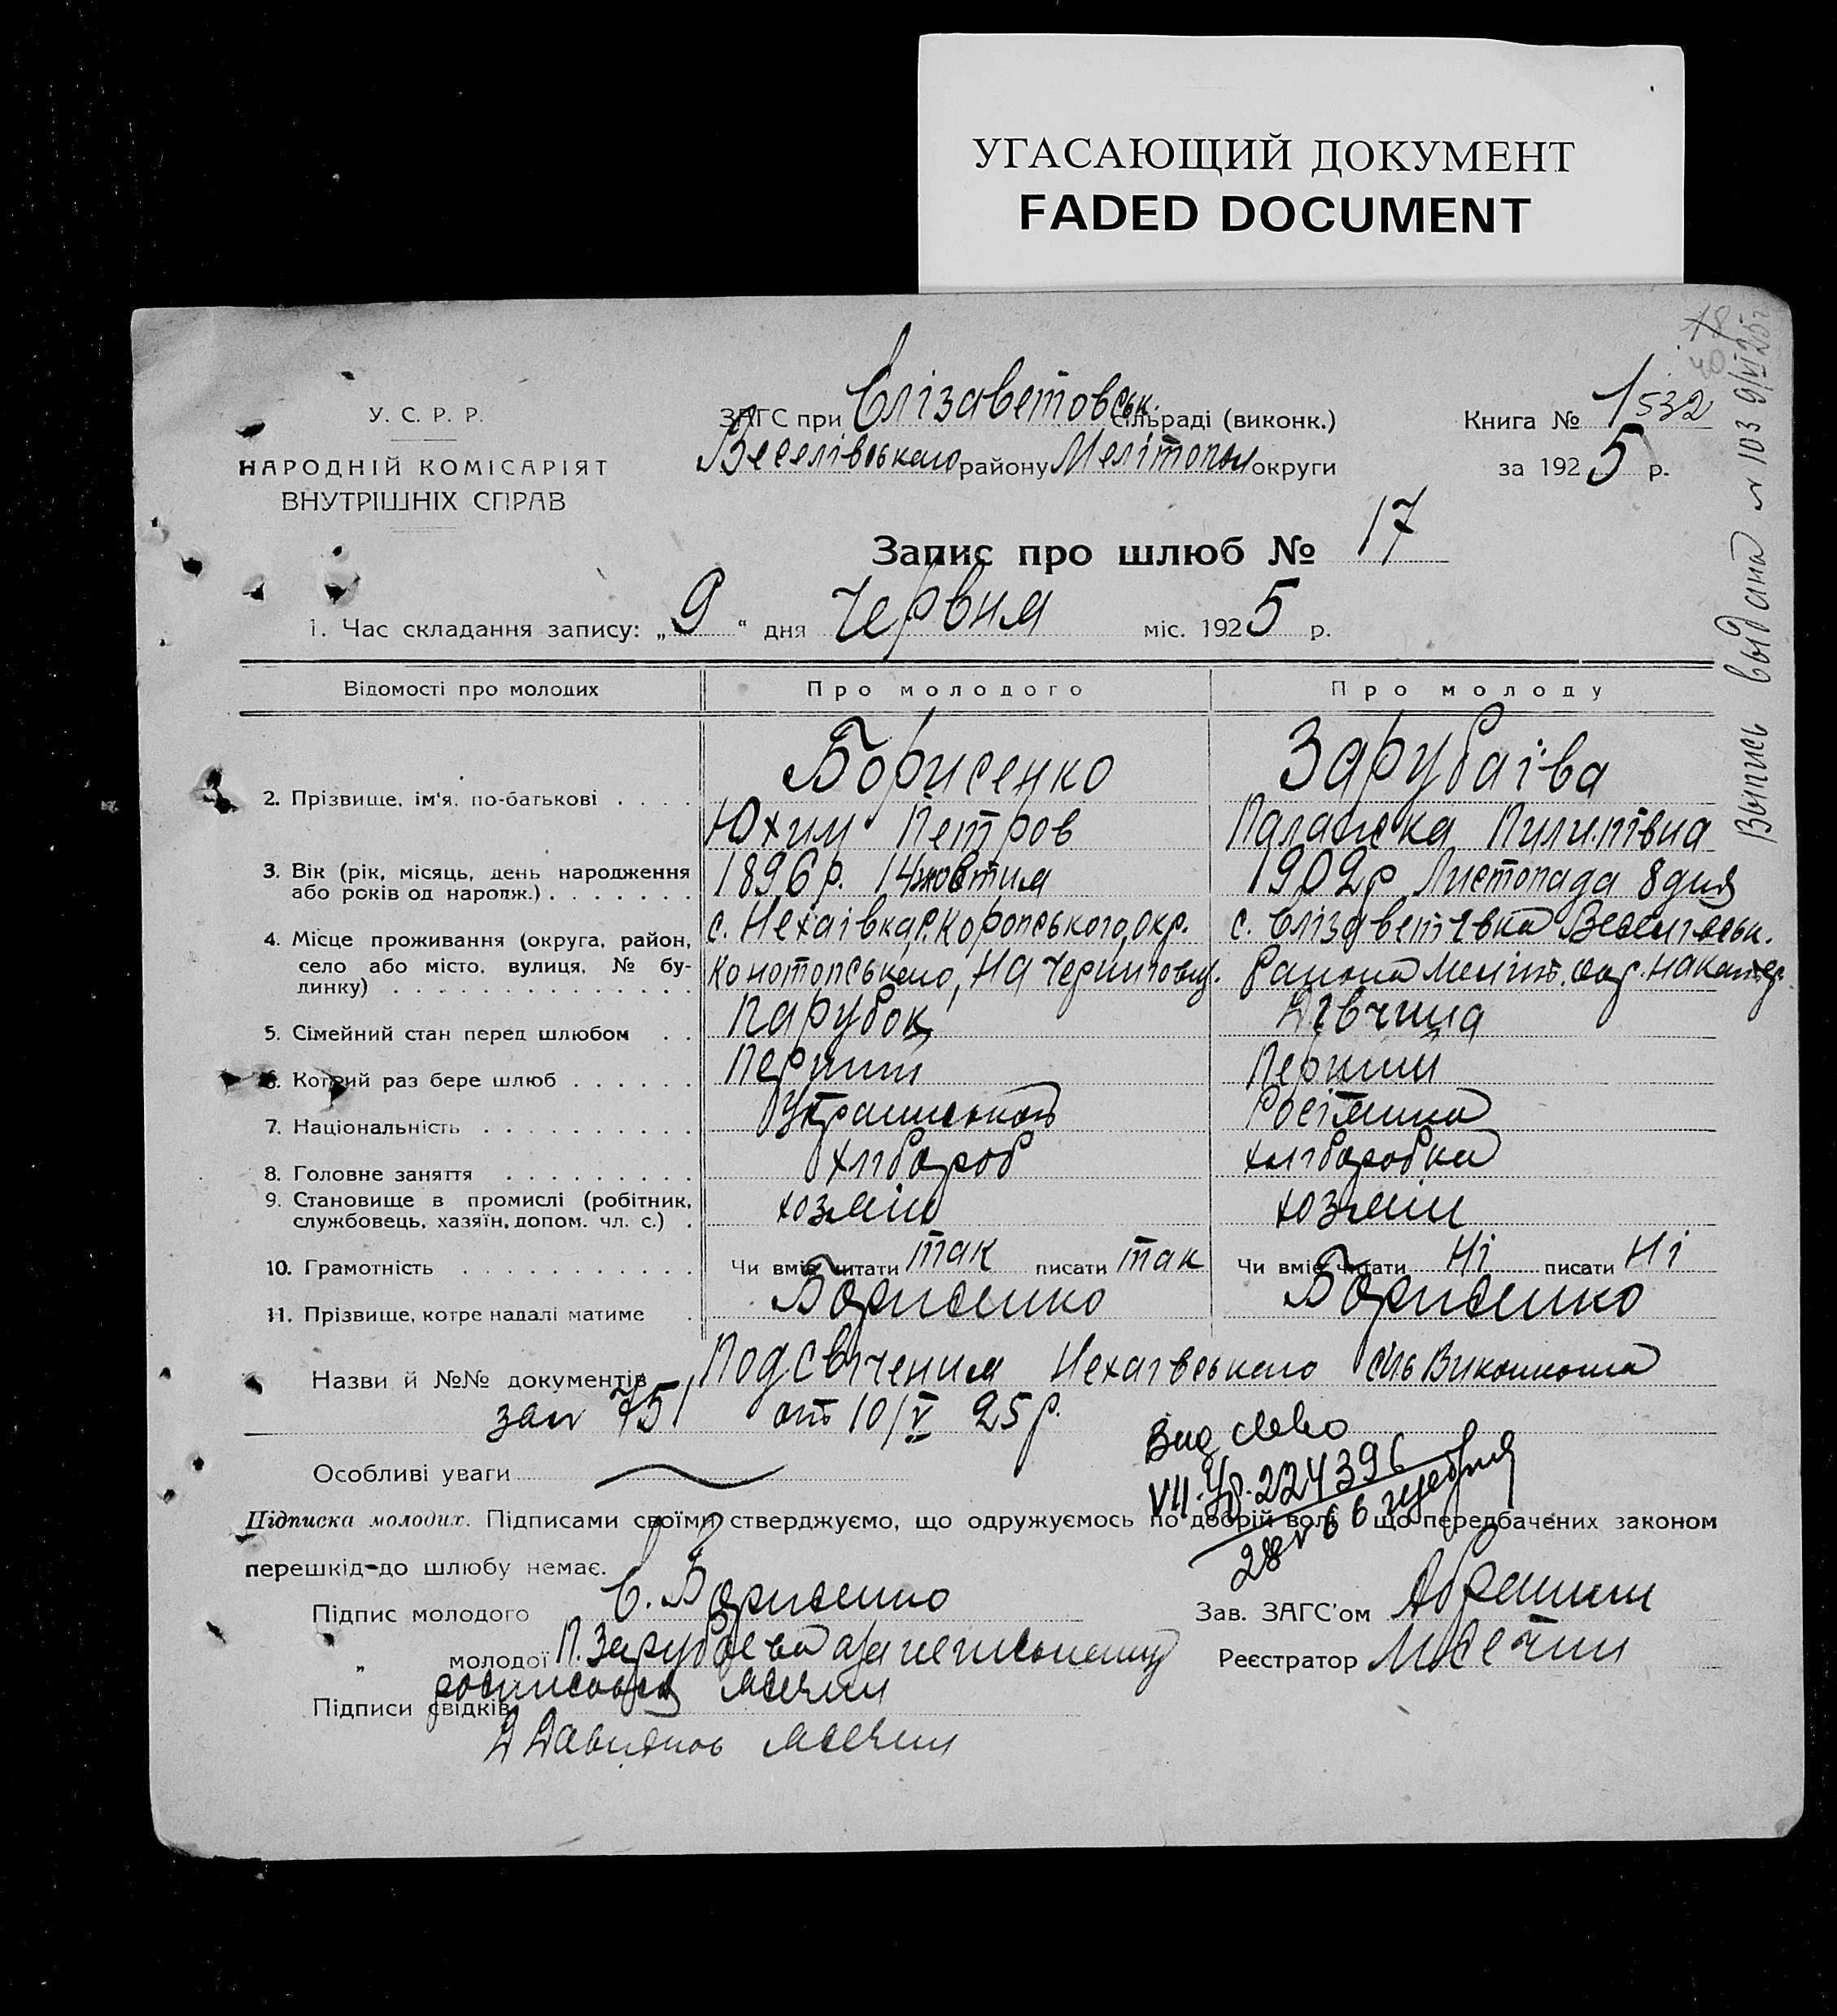 УГАСАЮЩИЙ ДОКУМЕНТ
FADED DOCUMENT
У. С. Р. Р.
НАРОДНІЙ КОМІСАРІЯТ
ВНУТРІШНІХ СПРАВ
ЗАГС при Єлізаветовськ. сільраді (виконк.)
Веселівського району Мелітопол округи
Книга № 1 532
за 1925 р.
Запис про шлюб № 17
1. Час складання запису: „9“ дня Червня міс. 1925 р.
Відомості про молодих
Про молодого
Про молоду
2. Прізвище, ім'я, по-батькові
Борисенко
Юхим Петров
Зарубаїва
Палажка Пилипівна
3. Вік (рік, місяць, день народження
або років од народж.)
1896 р. 14 жовтня
1902 р Листопада 8 дня
4. Місце проживання (округа, район,
село або місто, вулиця, № бу-
динку)
с. Нехаївка, Р. Коропського, окр.
Конотопського, на Черниговщ.
с. Єлізаветівка Веселівськ.
района Меліт. окр. на Катер.
5. Сімейний стан перед шлюбом
Парубок
Дівчина
6. Котрий раз бере шлюб
Перший
Перший
7. Національність
Росіянка
8. Головне заняття
хлібороб
хліборобка
9. Становище в промислі (робітник,
службовець, хазяїн, допом. чл. с.)
хозяїн
хозяїн
10. Грамотність
Чи вміє читати так писати так
Чи вміє читати Ні писати Ні
11. Прізвище, котре надалі матиме
Борисенко
Борисенко
Назви й №№ документів Подсвічения Нехаївського сіль Виконкома
за № 751 от 10/V 25 р.
Особливі уваги
VII. 224396
Підписка молодих. Підписами своїми стверджуємо, що одружуємось по добрій волі і що передбачених законом
перешкід до шлюбу немає.
Підпис молодого Є. Борисенко
Зав. ЗАГС'ом
„ молодої П. Зарубаева а за неписьменну
росписався
Реєстратор
Підписи свідків
Выпись выдана № 103 9/VI 25 г